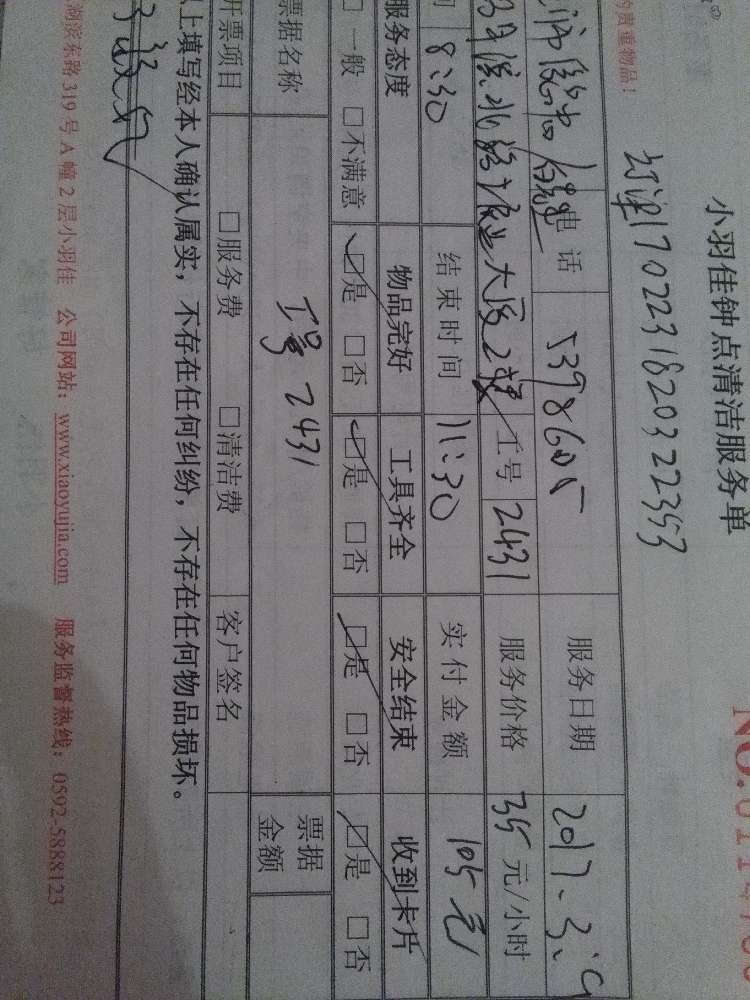 的贵重物品！
小羽佳钟点清洁服务单
1702231820322353
电话 5398605 服务日期 2017.3.
大厦2楼 工号 2431 服务价格 35元/小时
8:30 结束时间 11:30 实付金额 105元
服务态度 物品完好 工具齐全 安全结束 收到卡片
□一般 □不满意 □是 □否 □是 □否 □是 □否 □是 □否
票据名称 工号 2431 票据金额
开票项目 □服务费 □清洁费 客户签名
以上填写经本人确认属实，不存在任何纠纷，不存在任何物品损坏。
湖滨东路319号A幢2层小羽佳 公司网站：www.xiaoyujia.com 服务监督热线：0592-5888123